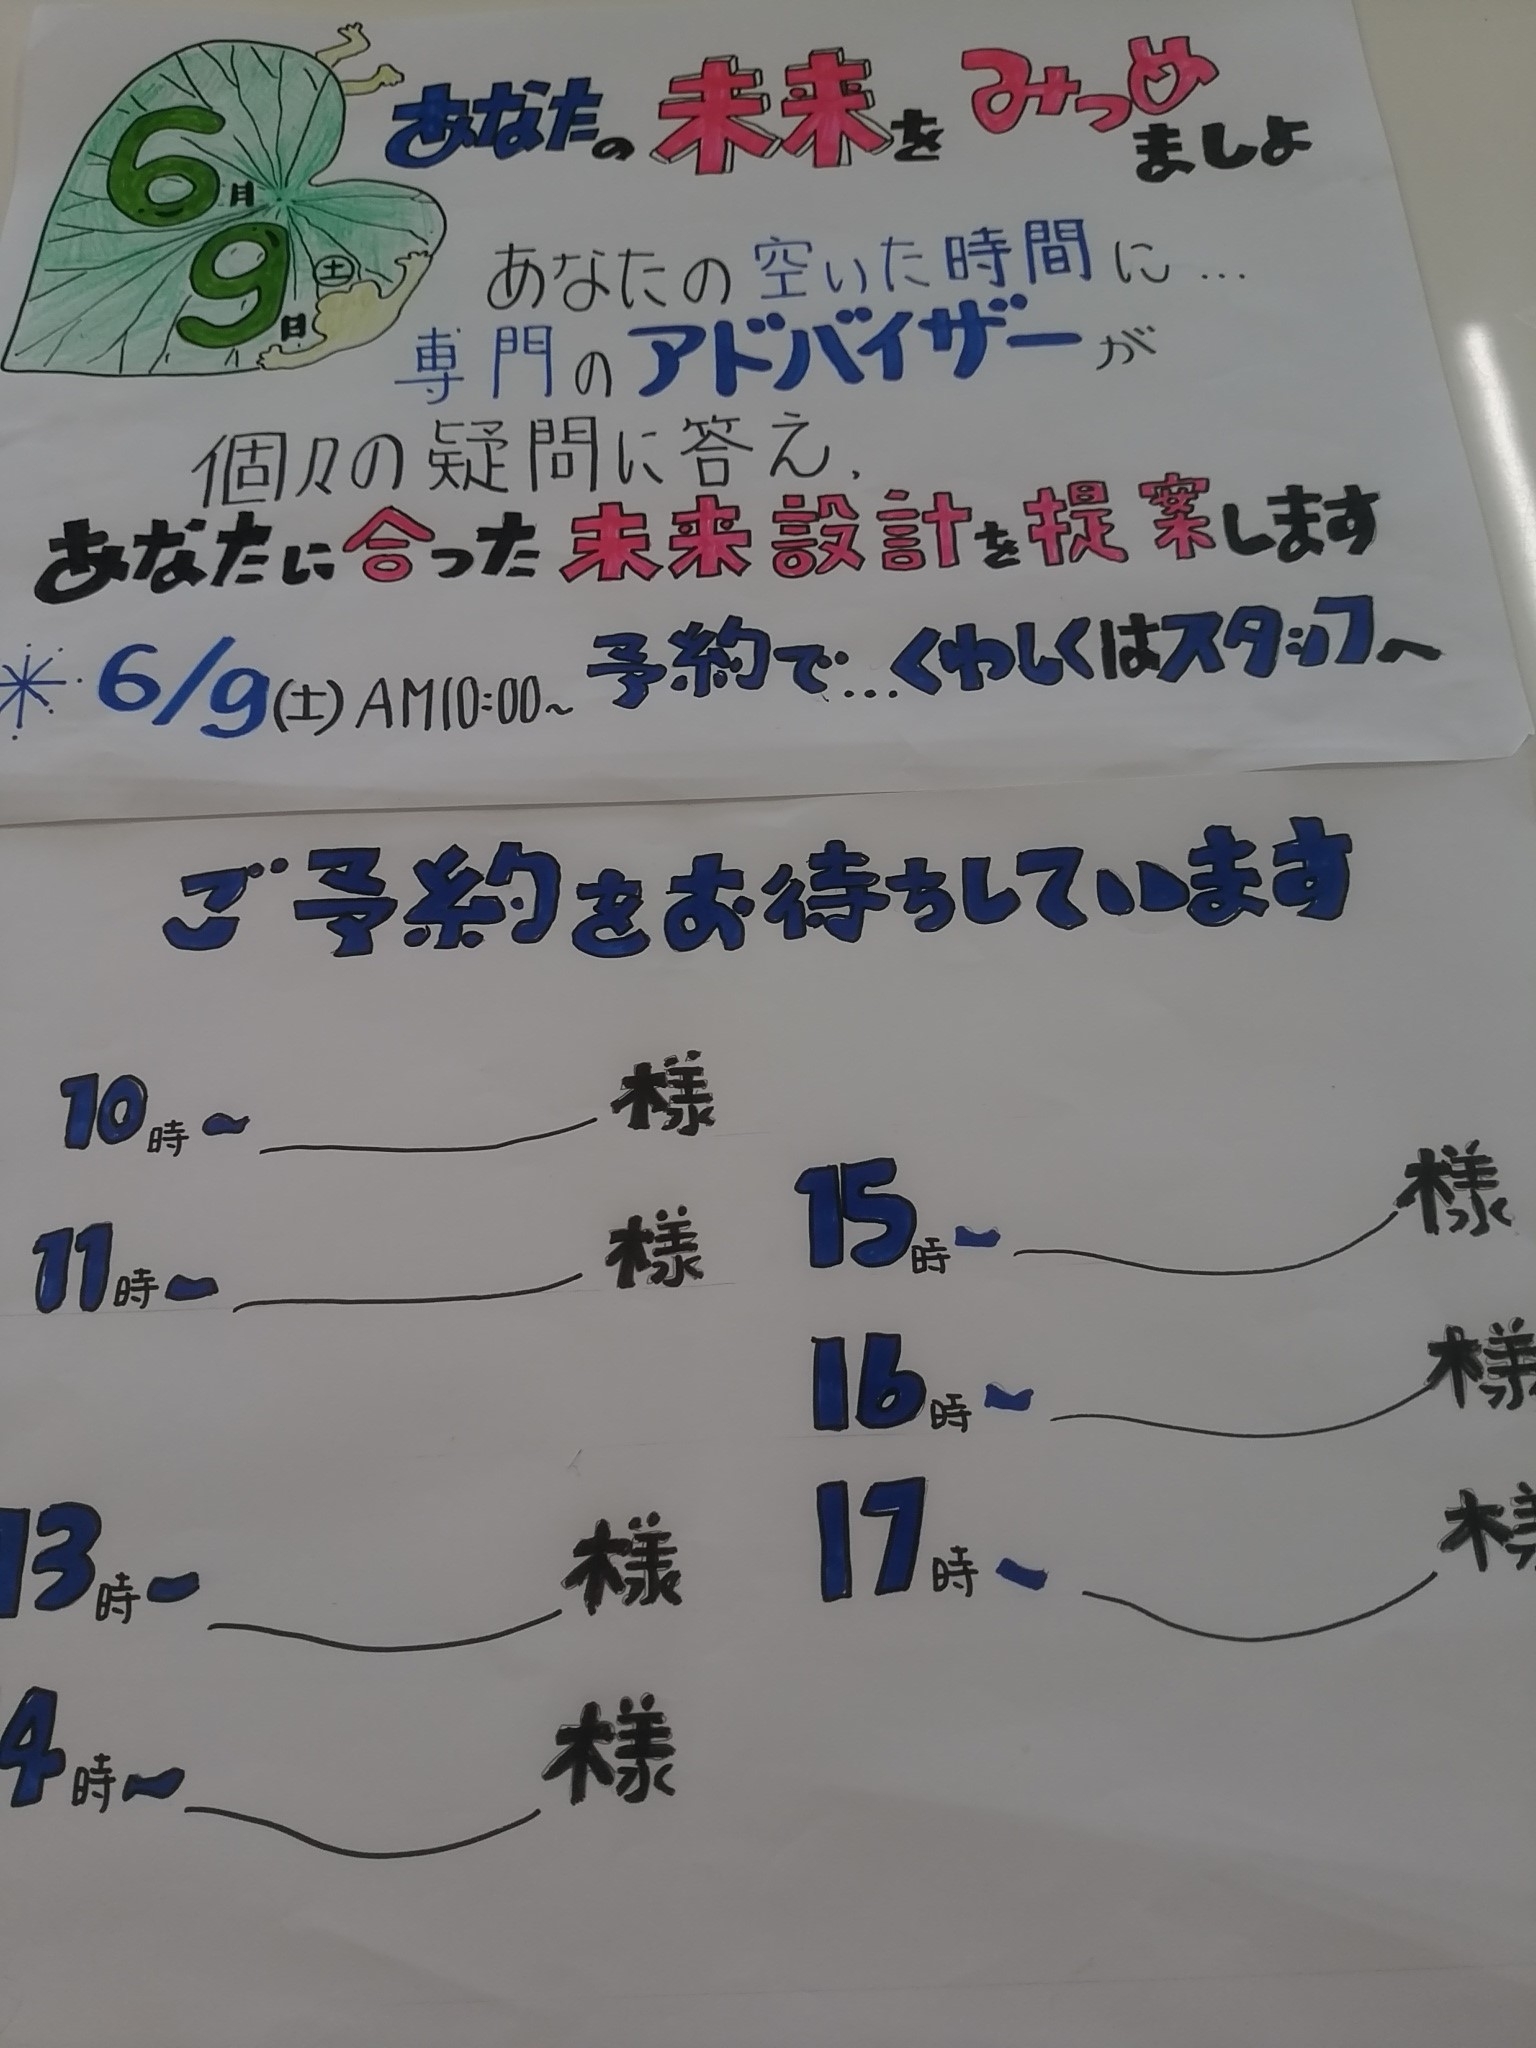 6月
9日
土
あなたの未来をみつめ
ましょ
あなたの空いた時間に…
専門のアドバイザーが
個々の疑問に答え、
あなたに合った未来設計を提案します
6/9(土)AM10:00~ 予約で…くわしくはスタッフへ
ご予約をお待ちしています
10時~ 様
11時~ 様
13時~ 様
4時~ 様
15時~ 様
16時~ 様
17時~ 様